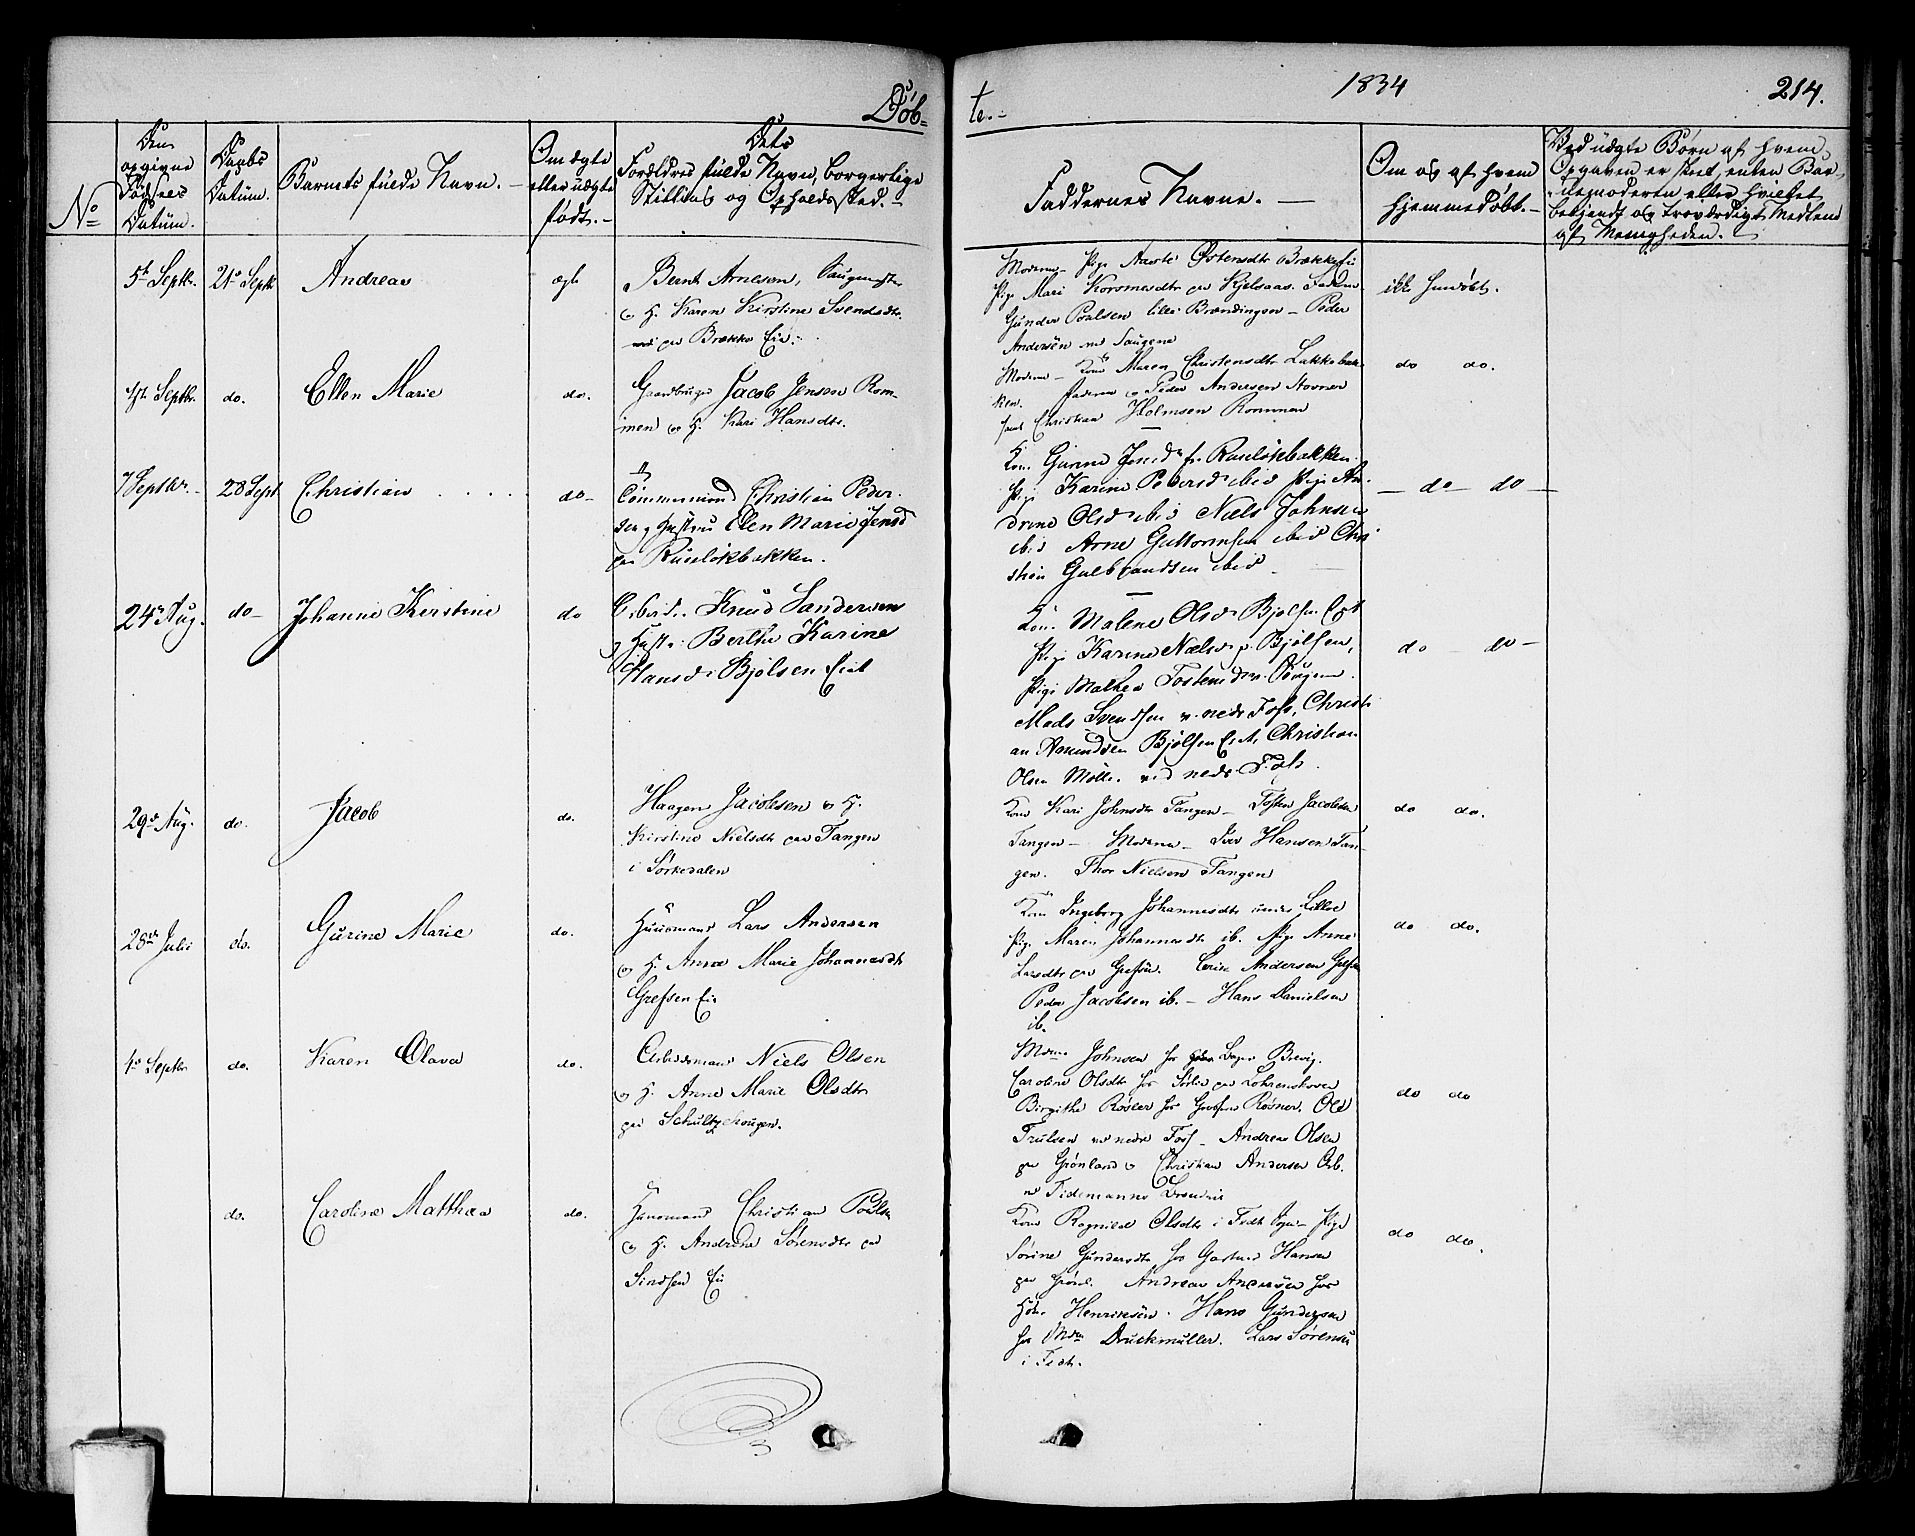 Døb-
te.-
1834
214.
No
Den
opgivne
Fødsels
Datum.
Daabs
Datum.
Barnets fulde Navn. -
Om ægte
eller uægte
født. -
Dets
Forældres fulde Navn, borgerlige
Stilling og Opholdssted. -
Faddernes Navne. -
Om og af hvem
hjemmedøbt. -
Ved uægte Børn af hvem
Opgaven er skeet, enten Bar-
nemoderen eller hvilket
bekjendt og troværdigt Medlem
af Menigheden.
5te Septbr. 21de Septb Andreas ægte
Bernt Arnesen,
og H. Karen Kirstine Svendsdtr.
paa Brække Eie.
Moderen - Pige Østensdtr Brække Eie
Pige Mari paa Kjelsaas. Faderen
Gunder Poulsen lille Brændingen - Peder
Andersen ved Saugene
ikke
Septbr. do. Ellen Marie do.
Gaardbruger Jacob Jensen Rom-
men og H. Kari Hansdtr.
Moderen - Kone Maren Christensdtr Lakkebak-
ken. Faderen og Peder Andersen Stovner
samt Christian Holmsen Rommen
do do.
7 Septbr. - 28 Sept Christian . . . . do -
Christian Peder-
sen og Hustrue Elen Marie Jensd
paa Ruseløkbakken.
Kone Gurine Jensdr fr. Ruseløkbakken.
Pige Karine Pedersd ibid Pige An-
drine Olsd ibid Niels Johnsen
ibid Arne Guttormsen ibid Chri-
stian Gulbrandsen ibid
- do - do -
24de Aug. do - Johanne Kerstine do
Knud Sandersen
og Hustr: Berthe Karine
Hansd: Bjølsen Eiet
Kone Malene Olsdr Bjølsen Eiet
Pige Karine Nielsdr p. Bjølsen,
Pige Mathea Tostensdr v. Saugene.
Mads Svendsen v. nedr Foss, Christi-
an Amundsen Bjølsen Eiet, Christian
Olsen Mølle. ved nedr. Foss.
do - do -
29de Aug. do. Jacob do.
Haagen Jacobsen og H.
Kirstine Nielsdtr paa Tangen
i Sørkedalen
Kone Kari Johnsdtr Tangen - Tosten Jacobsen
Tangen - Moderen - Iver Hansen Tan-
gen. Thor Nielsen Tangen
do do.
28de Julii do. Gurine Marie do.
Huusmand Lars Andersen
og H. Anne Marie Johannesdtr
Grefsen Eie
Kone Ingeborg Johannesdtr under Lilloe
Pige Maren Johannesdtr ib. Pige Anne
Larsdtr paa Grefsen. Andersen Grefsen
Peder Jacobsen ib. - Hans Danielsen
ib.
do do.
4de Septbr do. Karen Olava do.
Arbeidsmand Niels Olsen
og H. Anne Marie Olsdtr
paa Schultzehougen.
Johnsen hos Bager Brevig.
Caroline Olsdtr hos
Birgithe Røsler hos Røsner. Ole
Trulsen ved nedre Foss - Andreas Olsen
paa Grønland og Christian Andersen Arb.
v. Tidemanns
do do
do. Caroline Matthea do.
Huusmand Christian Poulsen
og H. Andrine Sørensdtr paa
Sindsen Eie
Kone Ragnild Olsdtr i - Pige
Sørine Gundersdtr hos Hansen
paa Grønl. Andreas Andersen hos
Henriksen. Hans Gundersen
hos Mdm Druckmüller. Lars Sørensen
i
do do.